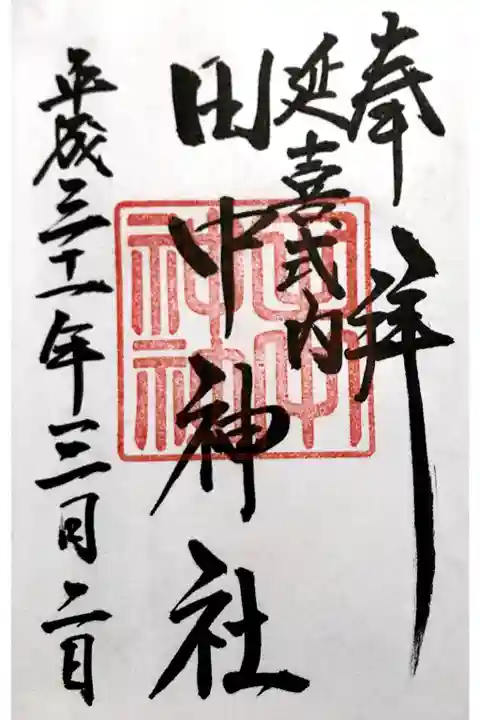 奉拝
延喜式内
田中神社
田中神社
平成三十一年三月二日